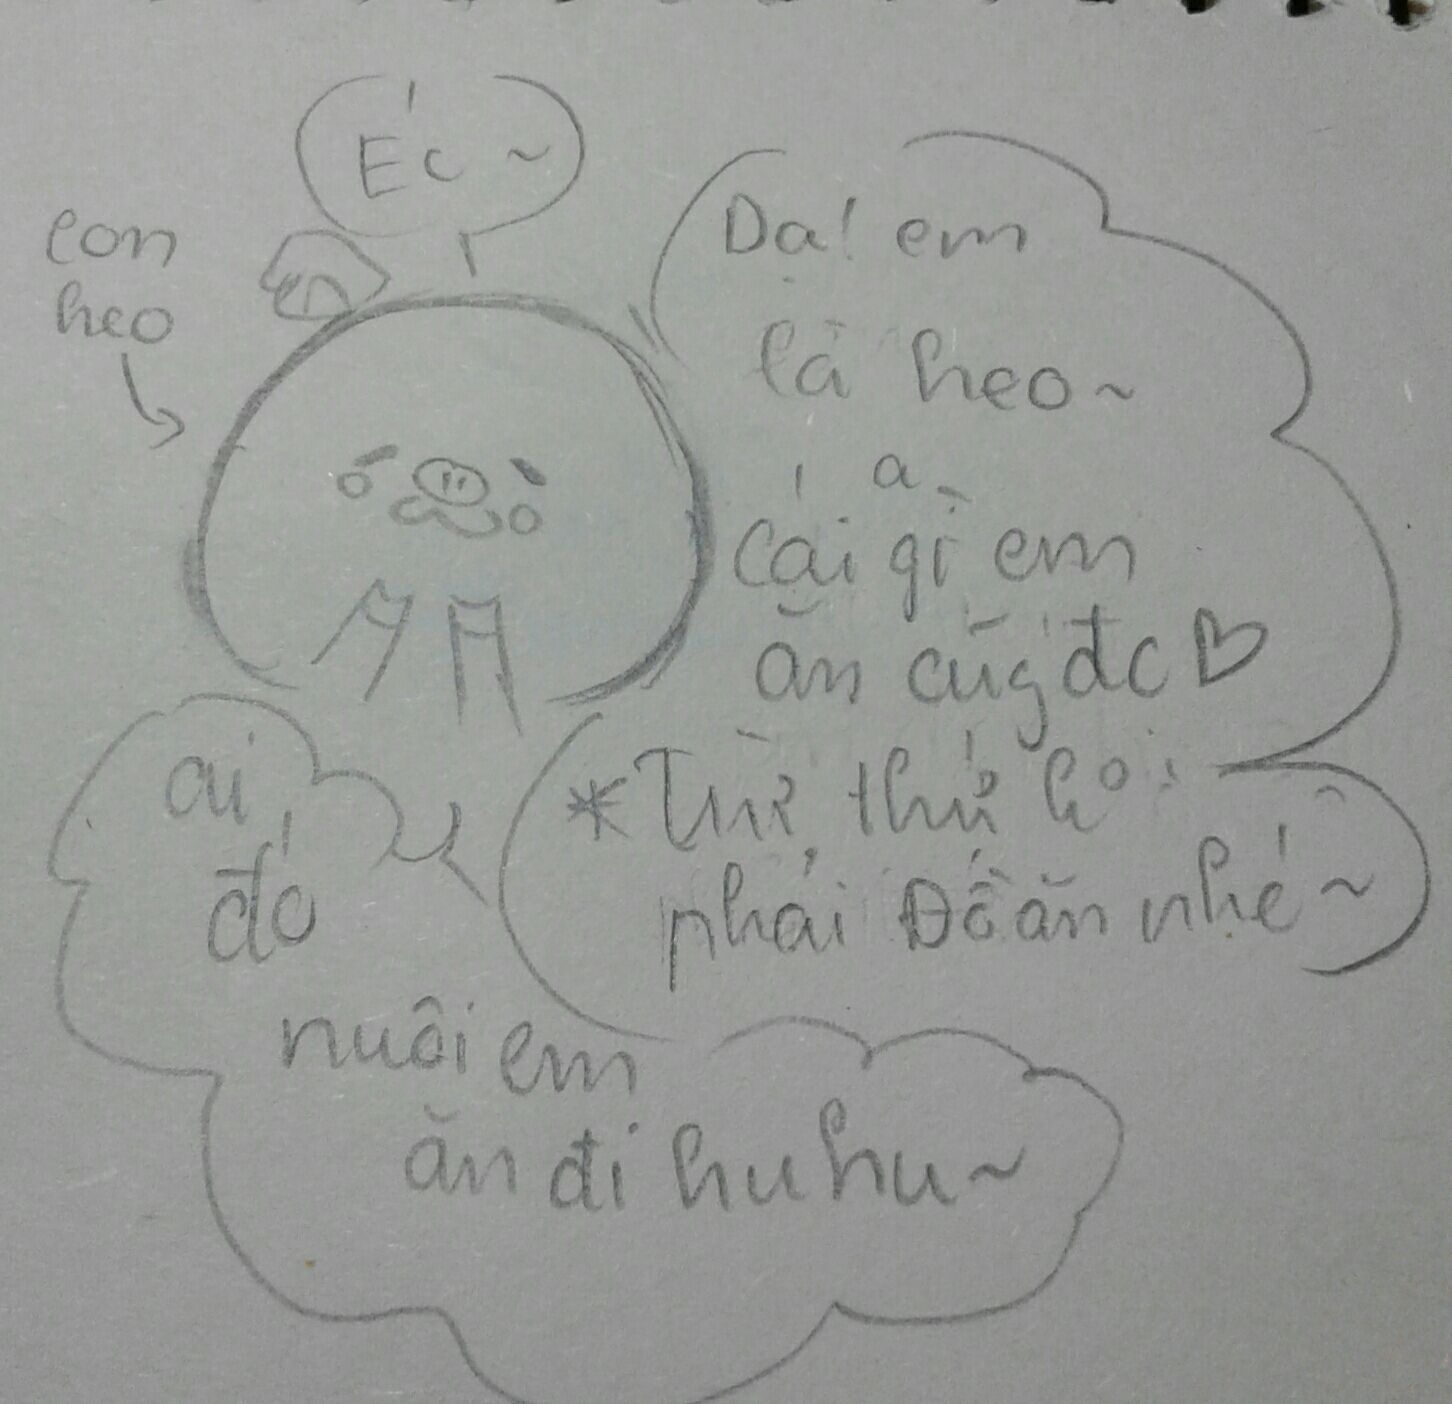 Éc ~
con
heo
Dạ! em
là heo ~
a
cái gì em
ăn cũg đc
*Trừ thứ ko
phải Đồ ăn nhé ~
ai
đó
nuôi em
ăn đi hu hu ~